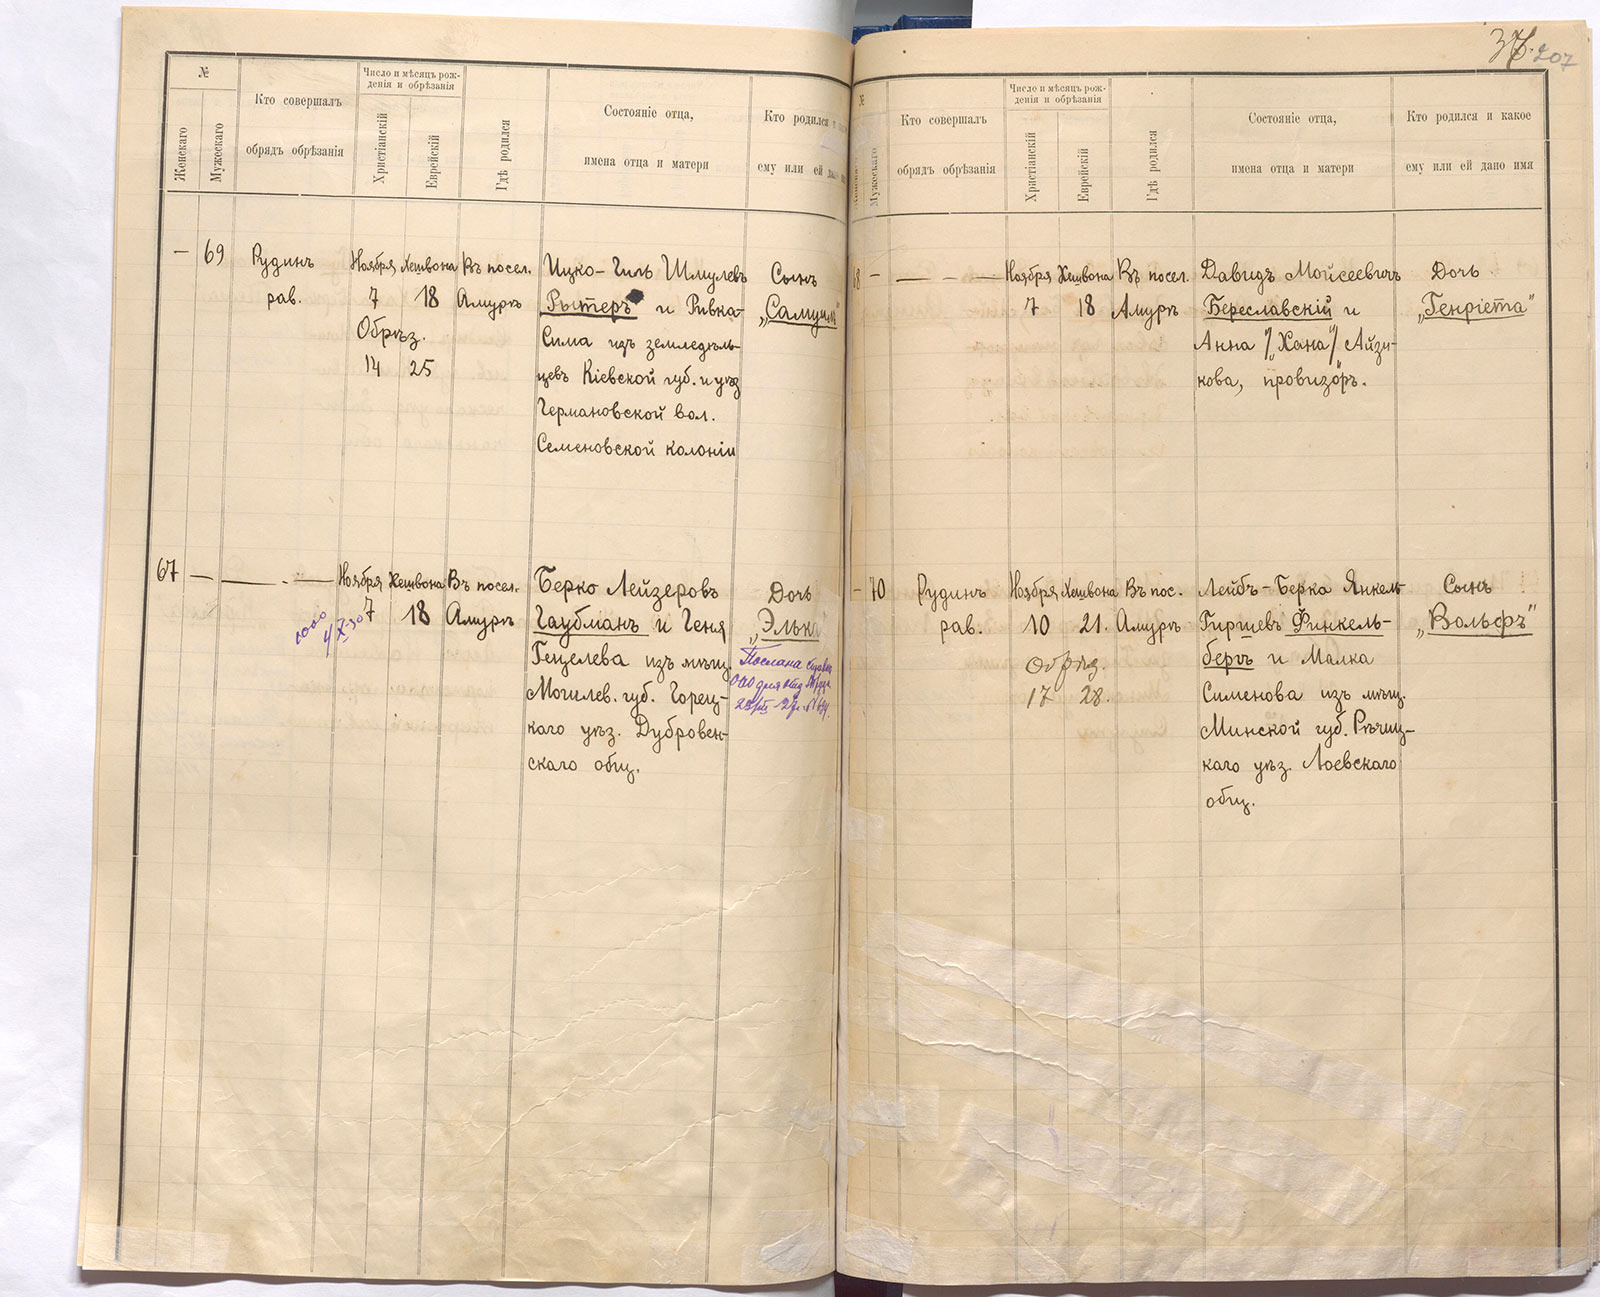 №
Женскаго
Мужескаго
Кто совершалъ
обрядъ обрѣзанія
Число и мѣсяцъ рож-
денія и обрѣзанія
Христіанскій
Еврейскій
Гдѣ родился
Состояніе отца,
имена отца и матери
Кто родился
ему или ей
— 69
Рудинъ
рав.
Ноября Хешвона
7 18
Обрѣз.
14 25
Въ посел.
Амурѣ
Ицко-Гиль Шмулевъ
Рытеръ и Ривка-
Сима изъ земледѣль-
цевъ Кіевской губ. и уѣз
Германовской вол.
Семеновской колоніи
Сынъ
„Самуилъ"
67 — — . —
Ноября Хешвона
7 18
Въ посел.
Амурѣ
Берко Лейзеровъ
Гаубманъ и Геня
Гецелева изъ мѣщ.
Могилев. губ. Горец-
каго уѣз. Дубровен-
скаго общ.
Дочь
„Элька
Послана
37. 207
№
Мужескаго
Кто совершалъ
обрядъ обрѣзанія
Число и мѣсяцъ рож-
денія и обрѣзанія
Христіанскій
Еврейскій
Гдѣ родился
Состояніе отца,
имена отца и матери
Кто родился и какое
ему или ей дано имя
8 — — — —
Ноября Хешвона
7 18
Въ посел.
Амурѣ
Давидъ Мойсеевичъ
Береславскій и
Анна /„Хана"/ Айзи-
кова, провизоръ.
Дочь
„Генріета"
— 70
Рудинъ
рав.
Ноября Хешвона
10 21.
Обрѣз.
17 28.
Въ пос.
Амурѣ
Лейбъ-Берка Янкель
Гиршевъ Финкель-
бергъ и Малка
Сименова изъ мѣщ.
Минской губ. Рѣчиц-
каго уѣз. Лоевскаго
общ.
Сынъ
„Вольфъ"